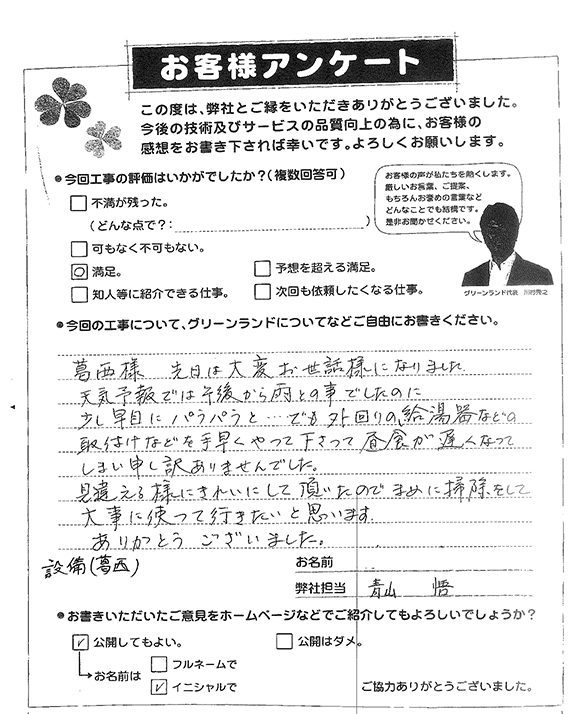 お客様アンケート
この度は、弊社とご縁をいただきありがとうございました。
今後の技術及びサービスの品質向上の為に、お客様の
感想をお書き下されば幸いです。よろしくお願いします。
●今回工事の評価はいかがでしたか?(複数回答可)
□不満が残った。
(どんな点で?: )
□可もなく不可もない。
☑満足。 □予想を超える満足。
□知人等に紹介できる仕事。 □次回も依頼したくなる仕事。
お客様の声が私たちを動くします。
厳しいお言葉、ご提案、
もちろんお誉めの言葉など
どんなことでも結構です。
是非お聞かせください。
グリーンランド代表
●今回の工事について、グリーンランドについてなどご自由にお書きください。
葛西様 先日は大変お世話様になりました
天気予報では午後から雨との事でしたのに
少し早目にパラパラと…でも外回りの給湯器などの
取付けなどを手早くやって下さって昼食が遅くなって
しまい申し訳ありませんでした。
見違える様にきれいにして頂いたのでまめに掃除をして
大事に使って行きたいと思います
ありがとうございました。
設備(葛西)
お名前
弊社担当 青山 悟
●お書きいただいたご意見をホームページなどでご紹介してもよろしいでしょうか?
☑公開してもよい。 □公開はダメ。
お名前は □フルネームで
☑イニシャルで
ご協力ありがとうございました。